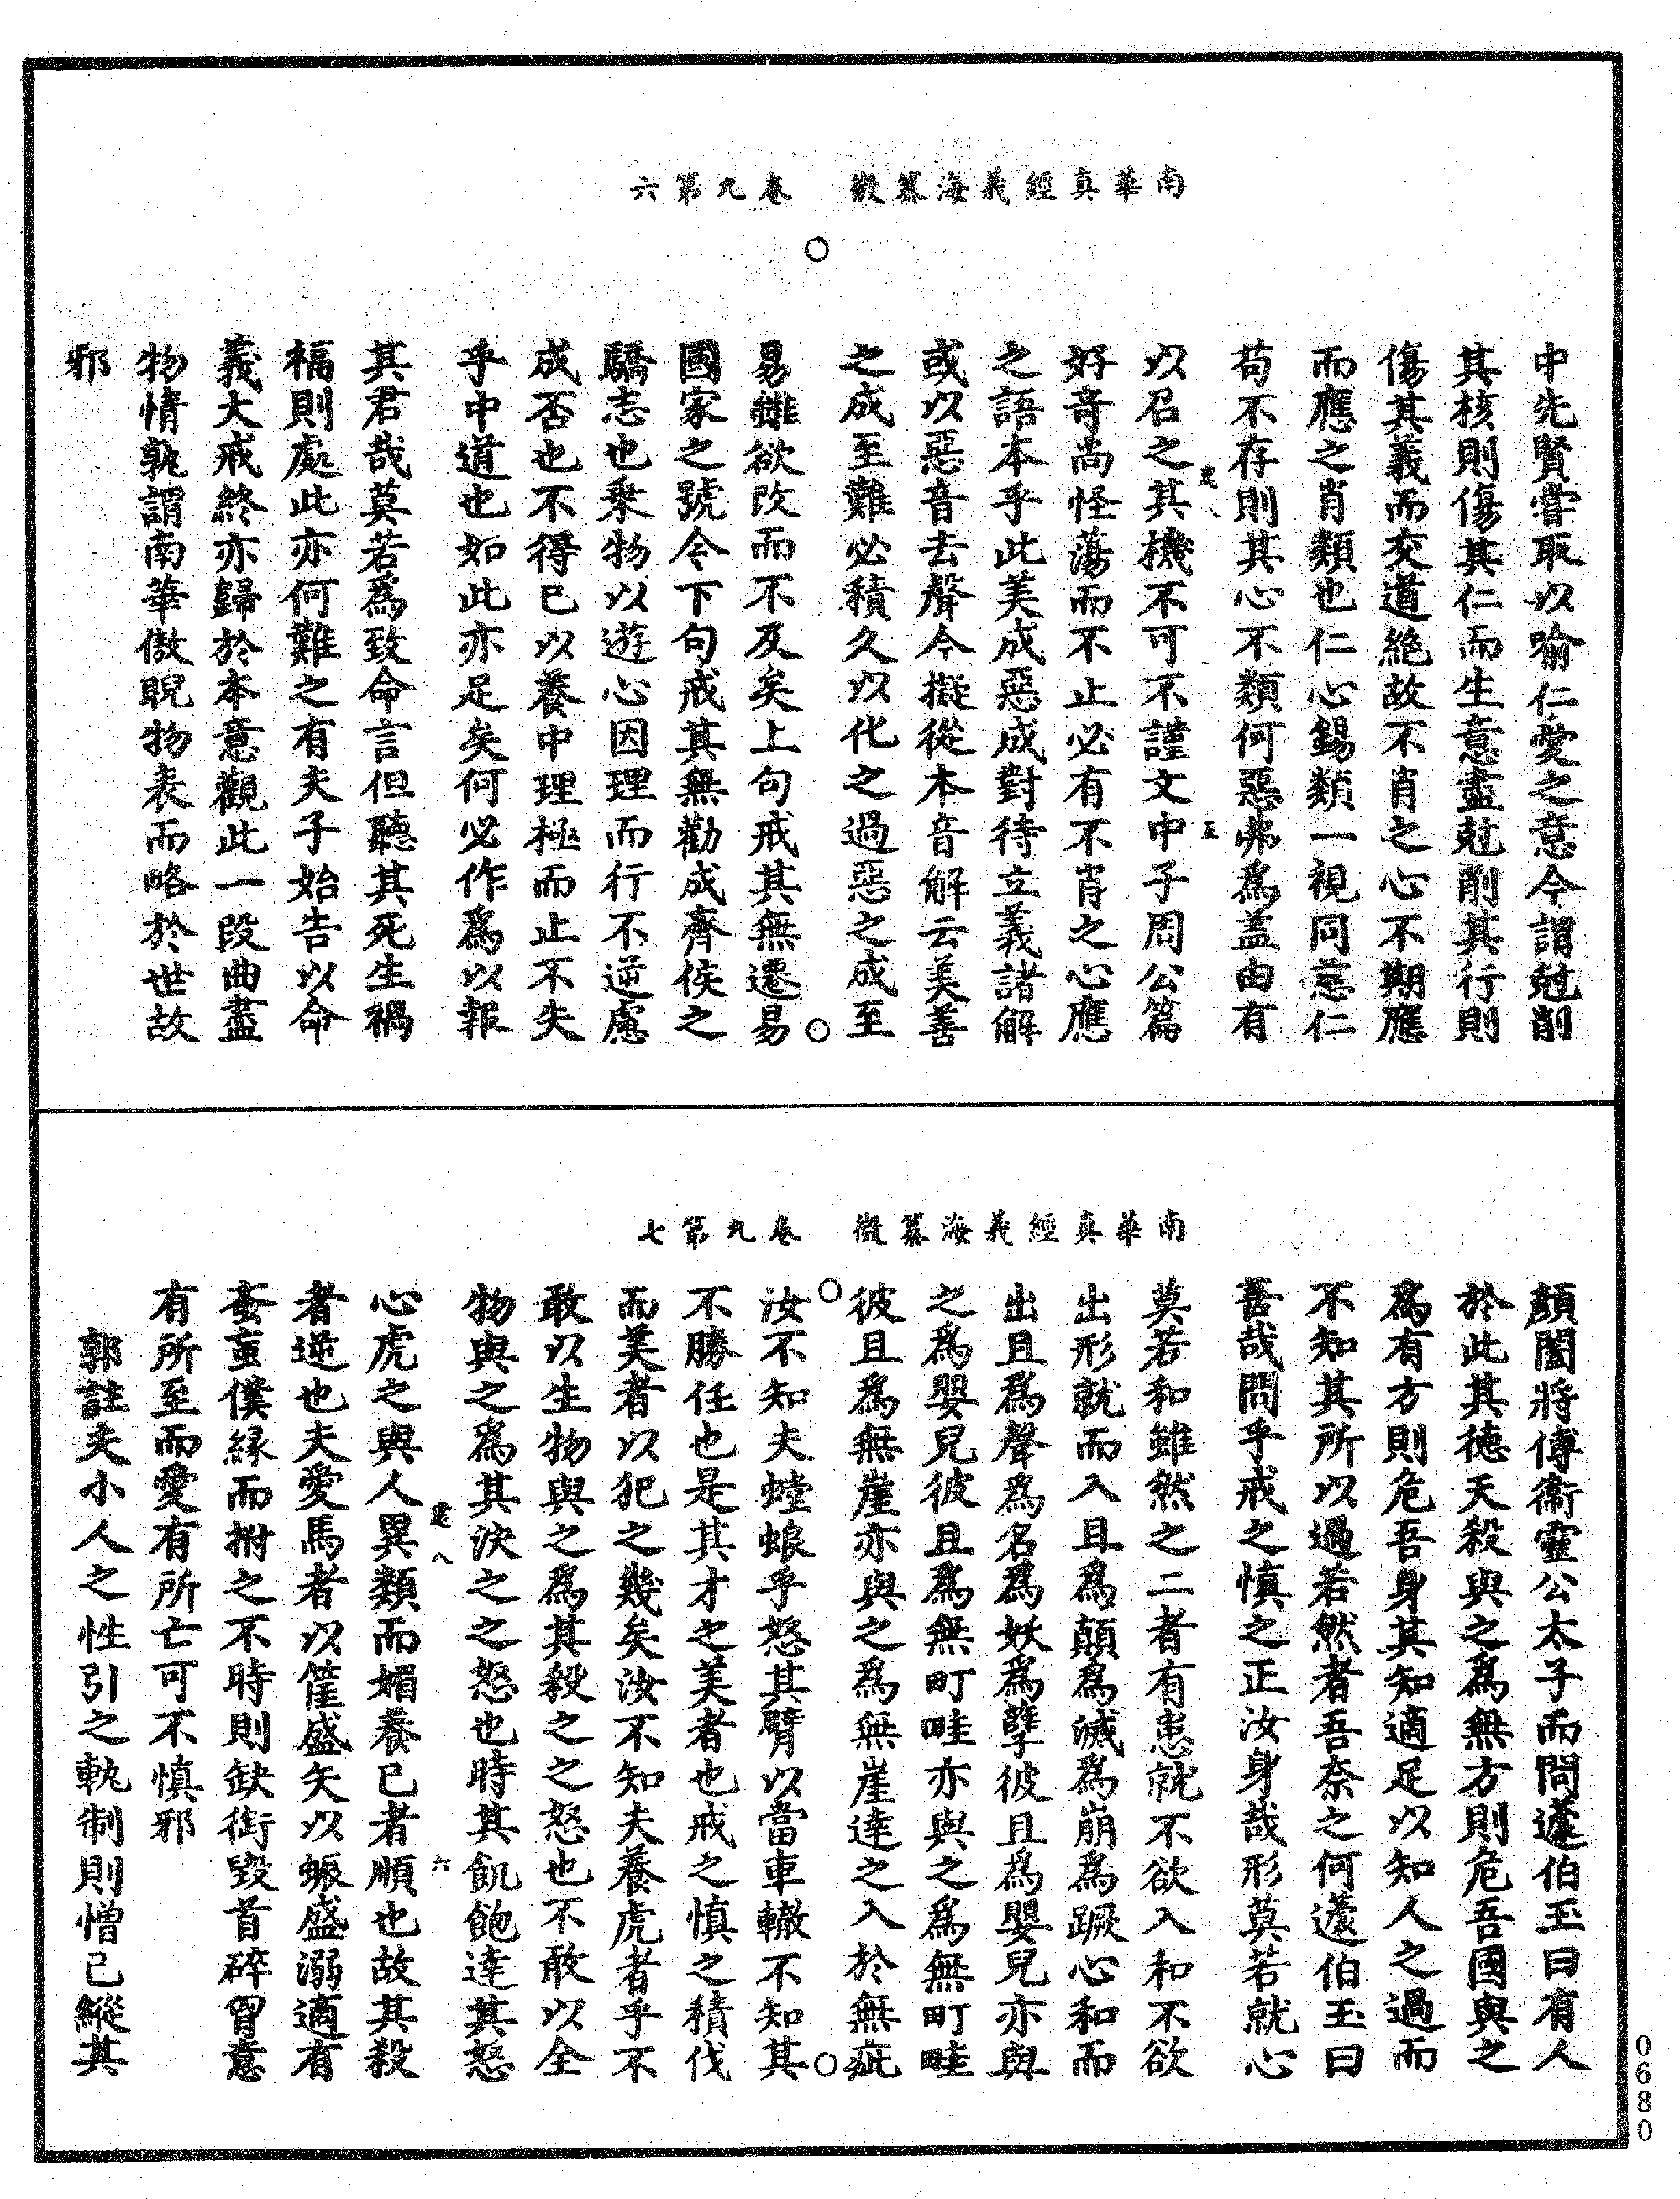 南華真經義海纂微　卷九第六
中先賢嘗取以喻仁愛之意今謂尅削
其核則傷其仁而生意盡尅削其行則
傷其義而交道絶故不肖之心不期應
而應之肖類也仁心錫類一視同慈仁
苟不存則其心不類何惡弗爲盖由有
以召之其機不可不謹文中子周公篇
好竒尚怪蕩而不止必有不肖之心應
之語本乎此美成惡成對待立義諸解
或以惡音去聲今擬從本音解云美善
之成至難必積久以化之過惡之成至
易雖欲改而不及矣上句戒其無遷易
國家之號令下句戒其無勸成齊侯之
驕志也乗物以遊心因理而行不逆慮
成否也不得已以養中理極而止不失
乎中道也如此亦足矣何必作爲以報
其君哉莫若爲致命言但聽其死生禍
福則處此亦何難之有夫子始告以命
義大戒終亦歸於本意觀此一段曲盡
物情孰謂南華傲睨物表而略於世故
邪
南華真經義海纂微　卷九第七
顔闔將傅衛靈公太子而問蘧伯玉曰有人
於此其德天殺與之爲無方則危吾國與之
爲有方則危吾身其知適足以知人之過而
不知其所以過若然者吾奈之何蘧伯玉曰
善哉問乎戒之慎之正汝身哉形莫若就心
莫若和雖然之二者有患就不欲入和不欲
出形就而入且爲顛爲滅爲崩爲蹶心和而
出且爲聲爲名爲妖爲孽彼且爲嬰兒亦與
之爲嬰兒彼且爲無町畦亦與之爲無町畦
彼且爲無崖亦與之爲無崖達之入於無疵
汝不知夫螳蜋乎怒其臂以當車轍不知其
不勝任也是其才之美者也戒之慎之積伐
而美者以犯之幾矣汝不知夫養虎者乎不
敢以生物與之爲其殺之之怒也不敢以全
物與之爲其决之之怒也時其飢飽達其怒
心虎之與人異類而媚養已者順也故其殺
者逆也夫愛馬者以筐盛矢以蜄盛溺適有
蚉䖟僕縁而拊之不時則缺銜毀首碎胷意
有所至而愛有所亡可不慎邪
郭註夫小人之性引之軌制則憎已縱其
0680